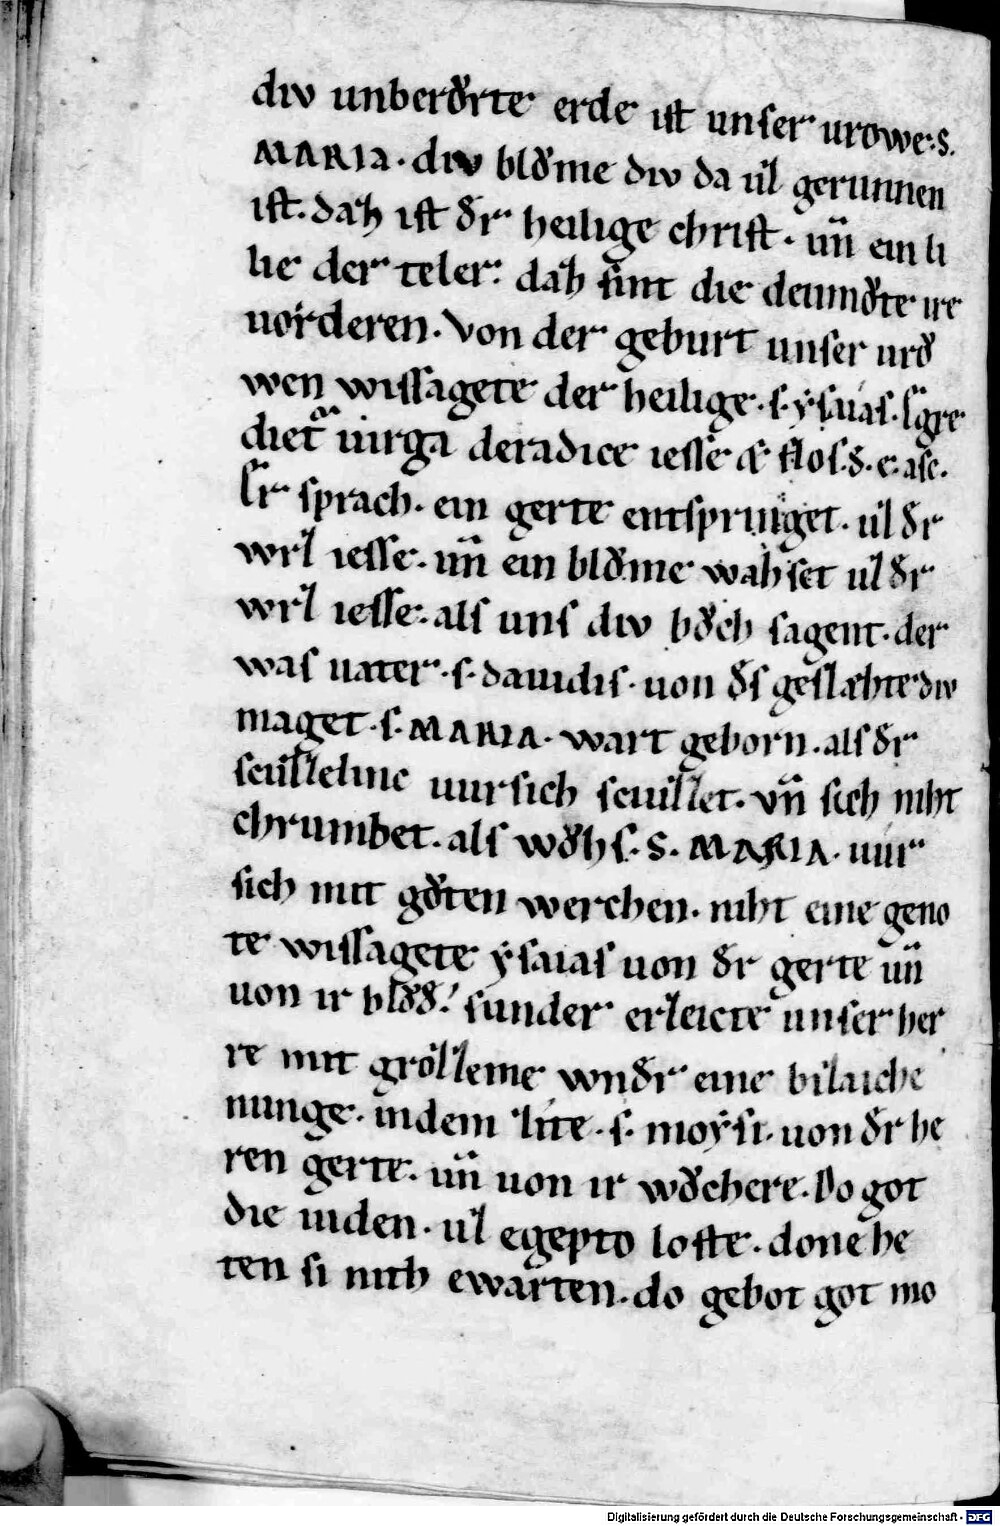 div unberǒrte erde ist unser urowe·S.
MARIA· div blǒme div da uͥl gerunnen
ist. daͥh ist dr̄ heilige christ· un̄ ein li
lie der teler. daͥh sint die deumǒte ire
uorderen. Von der geburt unser urǒ
wen wissagete der heilige·s·ẏsaias.
dietᷓ uirga deradice iesse & flos·d·e·asc.
sprach. ein gerte entspringet· uͥl dr̄
wrl iesse. un̄ ein blǒme wahset uͥl dr̄
wrl iesse. als uns div bǒch sagent. der
was uater·s·dauidis. uon ds̄ geslæhte div
maget·s·MARIA· wart geborn. als dr̄
scuͥlleline uursich scuͥllet. vn̄ sich niht
chrumbet. als wǒhs·S·MARIA· uur
sich mit gǒten werchen. niht eine geno
te wissagete ẏsaias uon dr̄ gerte un̄
uon ir sunder erleicte unser her
re mit groͥlleme wndr̄ eine bilaiche
nunge. indem ·s· moẏsi. uon dr̄ he
ren gerte. un̄ uon ir wǒchere. Do got
die iuden. uͥl egepto loste. done he
ten si nith ewarten. do gebot got mo
Digitalisierung gefördert durch die Deutsche Forschungsgemeinschaft - DFG